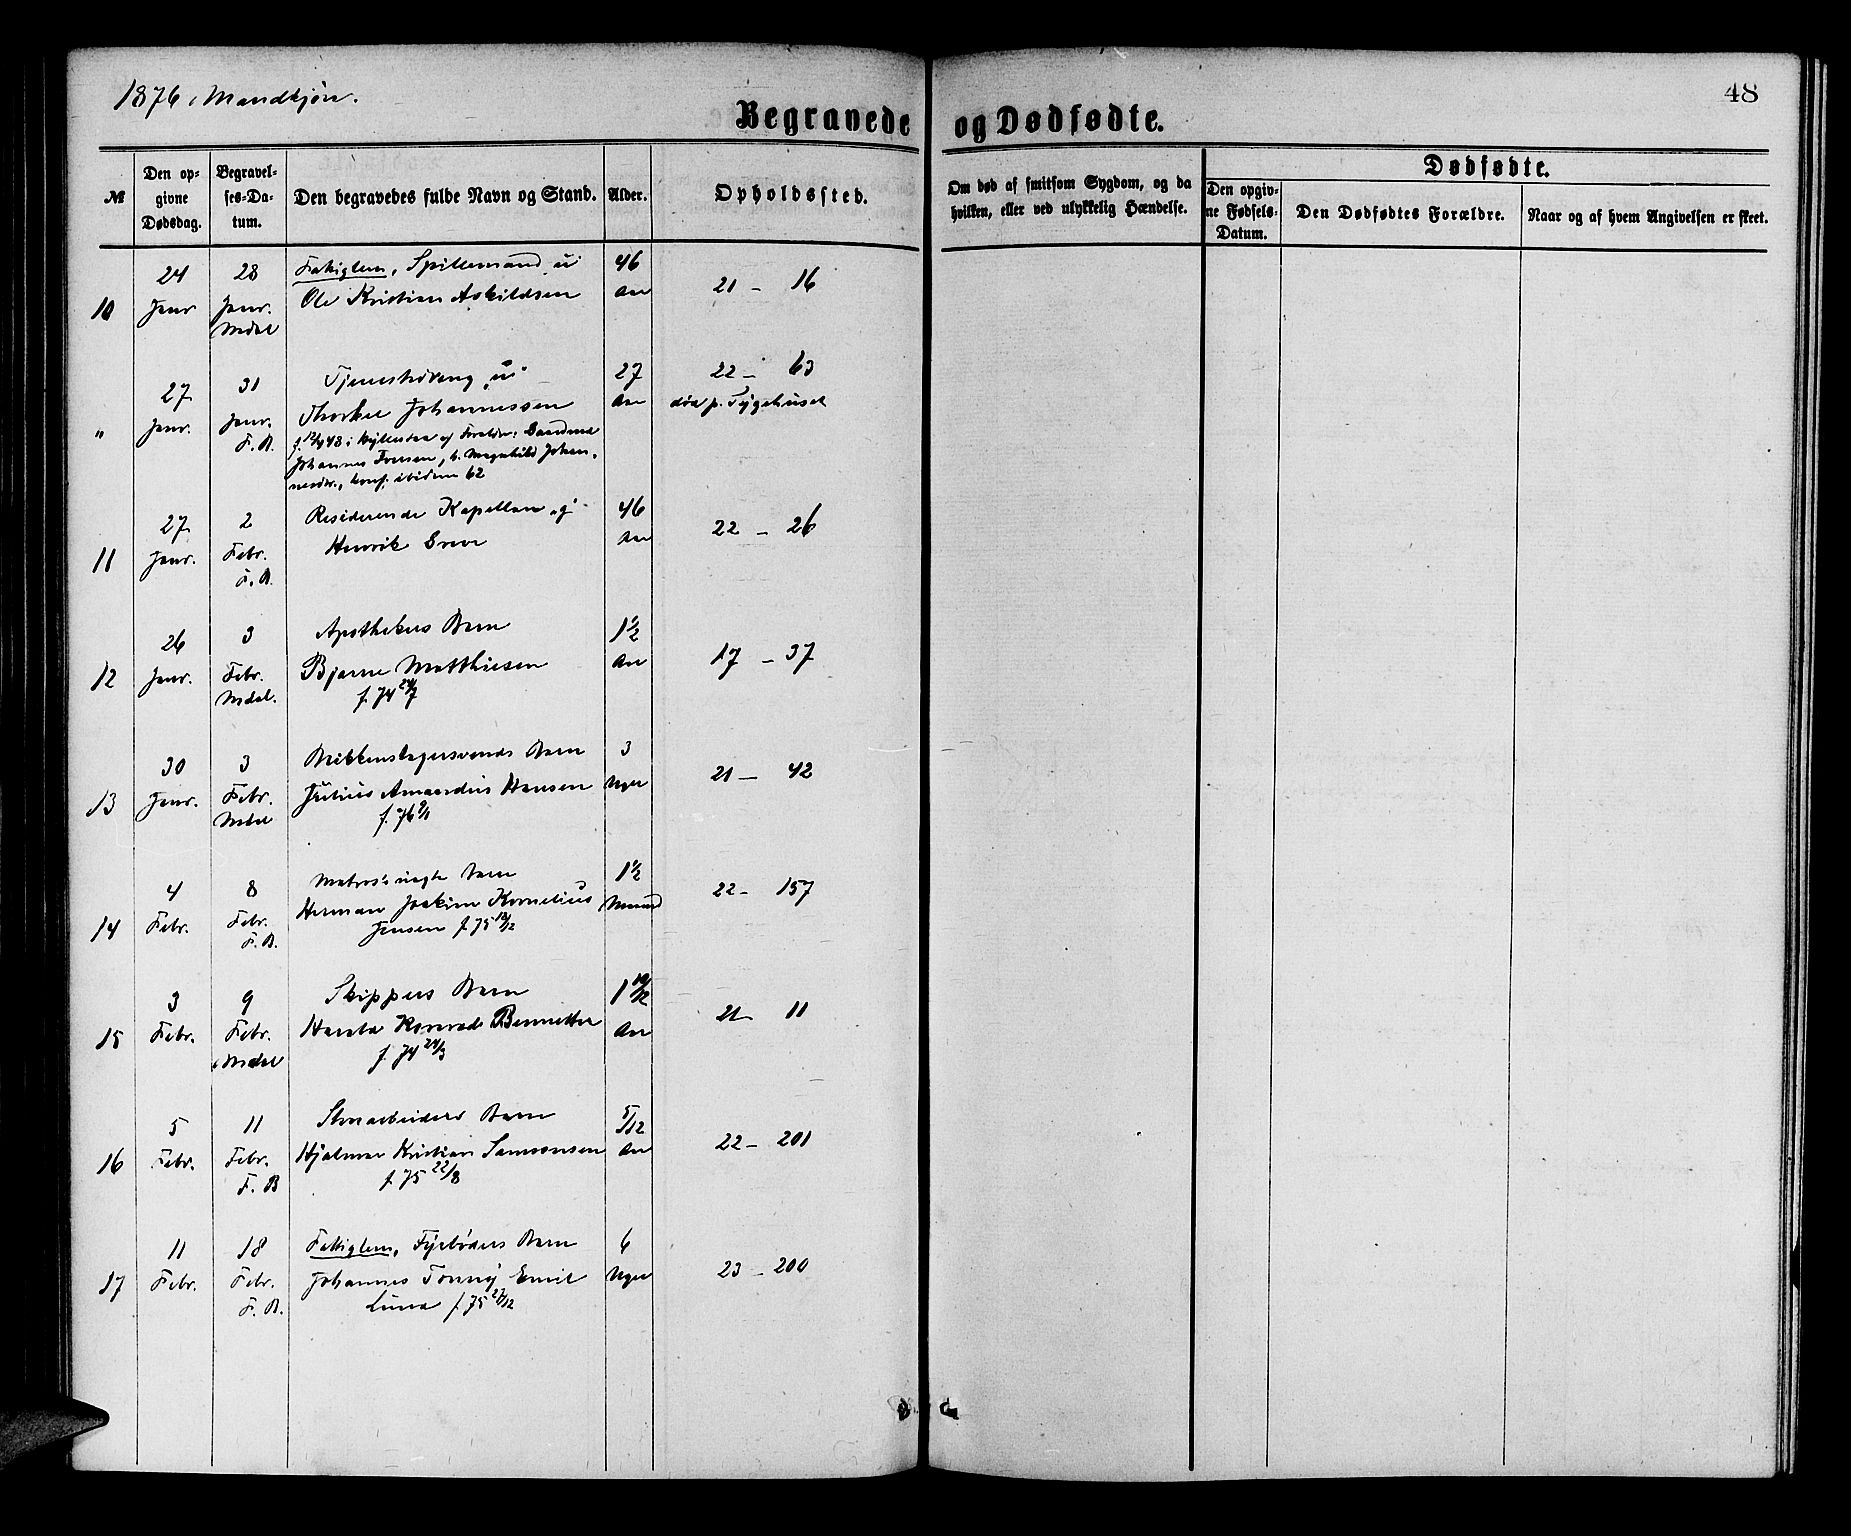 1876, Mandkjøn.
48
Begravede og Dødfødte.
№
Den opgivne Dødsdag.
Begravelses-Datum.
Den begravedes fulde Navn og Stand.
Alder.
Opholdssted.
Om død af smitsom Sygdom, og da hvilken, eller ved ulykkelig Hændelse.
Dødfødte.
Den opgivne Fødsels-Datum.
Den Dødfødtes Forældre.
Naar og af hvem Angivelsen er skeet.
24 28 Fatiglem, Spillemand, u 46
10 Janr Janr. Ole Kristian Askildsen Aar 21 - 16
Mdal
27 31 Tjenestdreng "u" 27 22 - 63
" Janr. Janr. Thorkel Johannessen Aar død p. Sygehuset
F. B.
Johannes Iversen, h. Magnhild Johannesdr., konf. ibidem 62
27 2 Residerende Kapellan "g" 46
11 Janr. Febr. Henrik Greve Aar 22 - 26
F. B.
26 3 Apothekers Barn 1½
12 Janr. Febr. Bjarne Matthiesen Aar 17 - 37
Mdal. f. 74 24/7
30 3 Blikkenslagersvends Barn 3
13 Janr. Febr. Julius Amandus Hansen Uger 21 - 42
Mdal f. 76 9/1
4 8 Matros's uægte Barn 1½
14 Febr. Febr. Herman Joakim Kornelius Maaned 22 - 157
F. B. Jensen f. 75 19/12
3 9 Skippers Barn 1 10/12
15 Febr. Febr. Harald Konrad Bennetter Aar 21 11
Mdal f. 74 24/3
5 11 Barn 5/12
16 Febr. Febr. Hjalmar Kristian Samsonsen Aar 22 - 201
F. B f. 75 22/8
11 18 Fattiglem, Fyrbøders Barn 6
17 Febr. Febr. Johannes Tonny Emil Uger 23 - 200
F. B. Luna f. 75 27/12